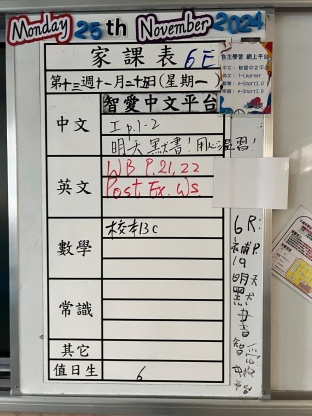 Monday 25th November 2024
家課表 6E
第十三週十一月二十五日(星期一)
自主學習 網上平台
智愛中文平台
中文
I p.1-2
明天默書!用心溫習!
英文
WB P.21,22
Post Ex. WS
數學
校本13C
常識
其它
值日生
6
6R:
補P.
19
明天
默
書
智